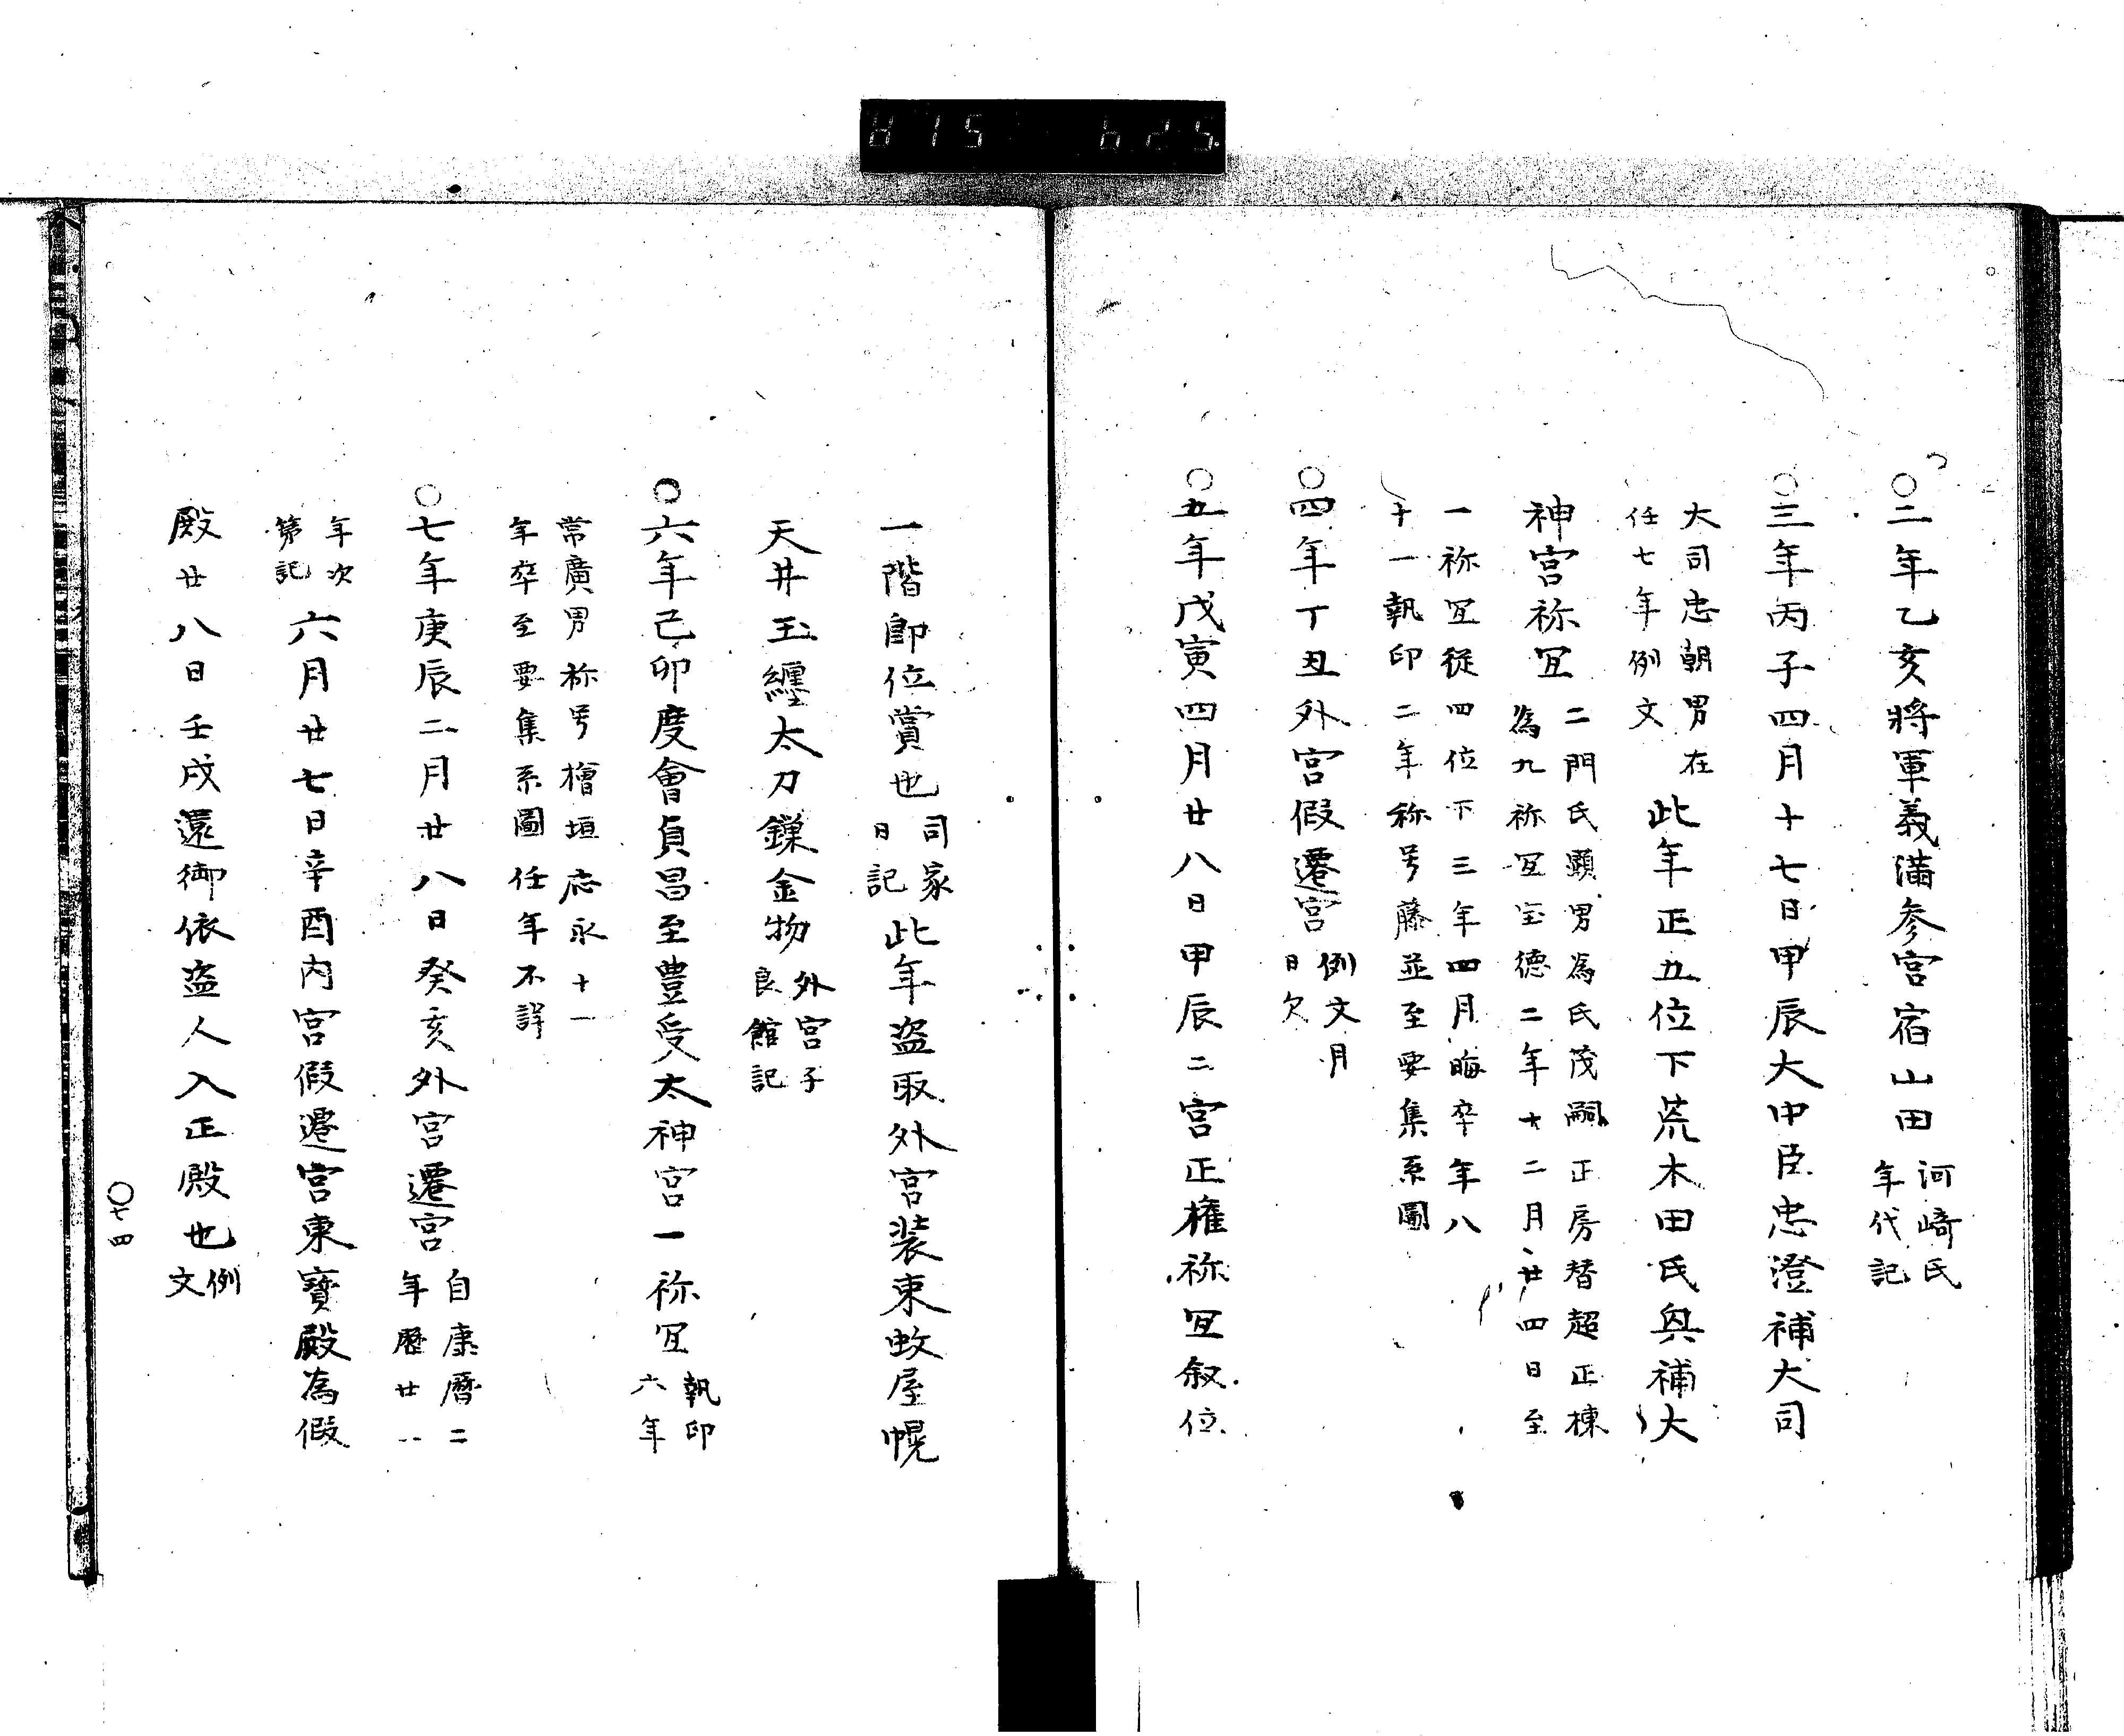 ○二年乙亥將軍義滿参宮宿山田
河﨑氏
年代記
○三年丙子四月十七日甲辰大中臣忠澄補大司
大司忠朝男在
任七年例文
此年正五位下荒木田氏興補大
神宮祢冝
二門氏顯男為氏茂嗣正房替超正棟
為九祢冝宝德二年十二月廿四日至
一祢冝從四位下三年四月晦卒年八
十一執印二年称号藤並至要集系圖
○四年丁丑外宮假遷宮
例文月
日欠
○五年戊寅四月廿八日甲辰二宮正權祢冝叙位
一階即位賞也
司家
日記
此年盗取外宮装束蚊屋幌
天井玉纏太刀鏁金物
外宮子
良館記
○六年己卯度會貞昌至豊受太神宮一祢冝
執印
六年
常廣男称号檜垣応永十一
年卒至要集系圖任年不詳
○七年庚辰二月廿八日癸亥外宮遷宮
自康暦二
年歷廿一
年次
第記
六月廿七日辛酉内宮假遷宮東寶殿為假
殿廿八日壬戌還御依盗人入正殿也
例
文
○七四